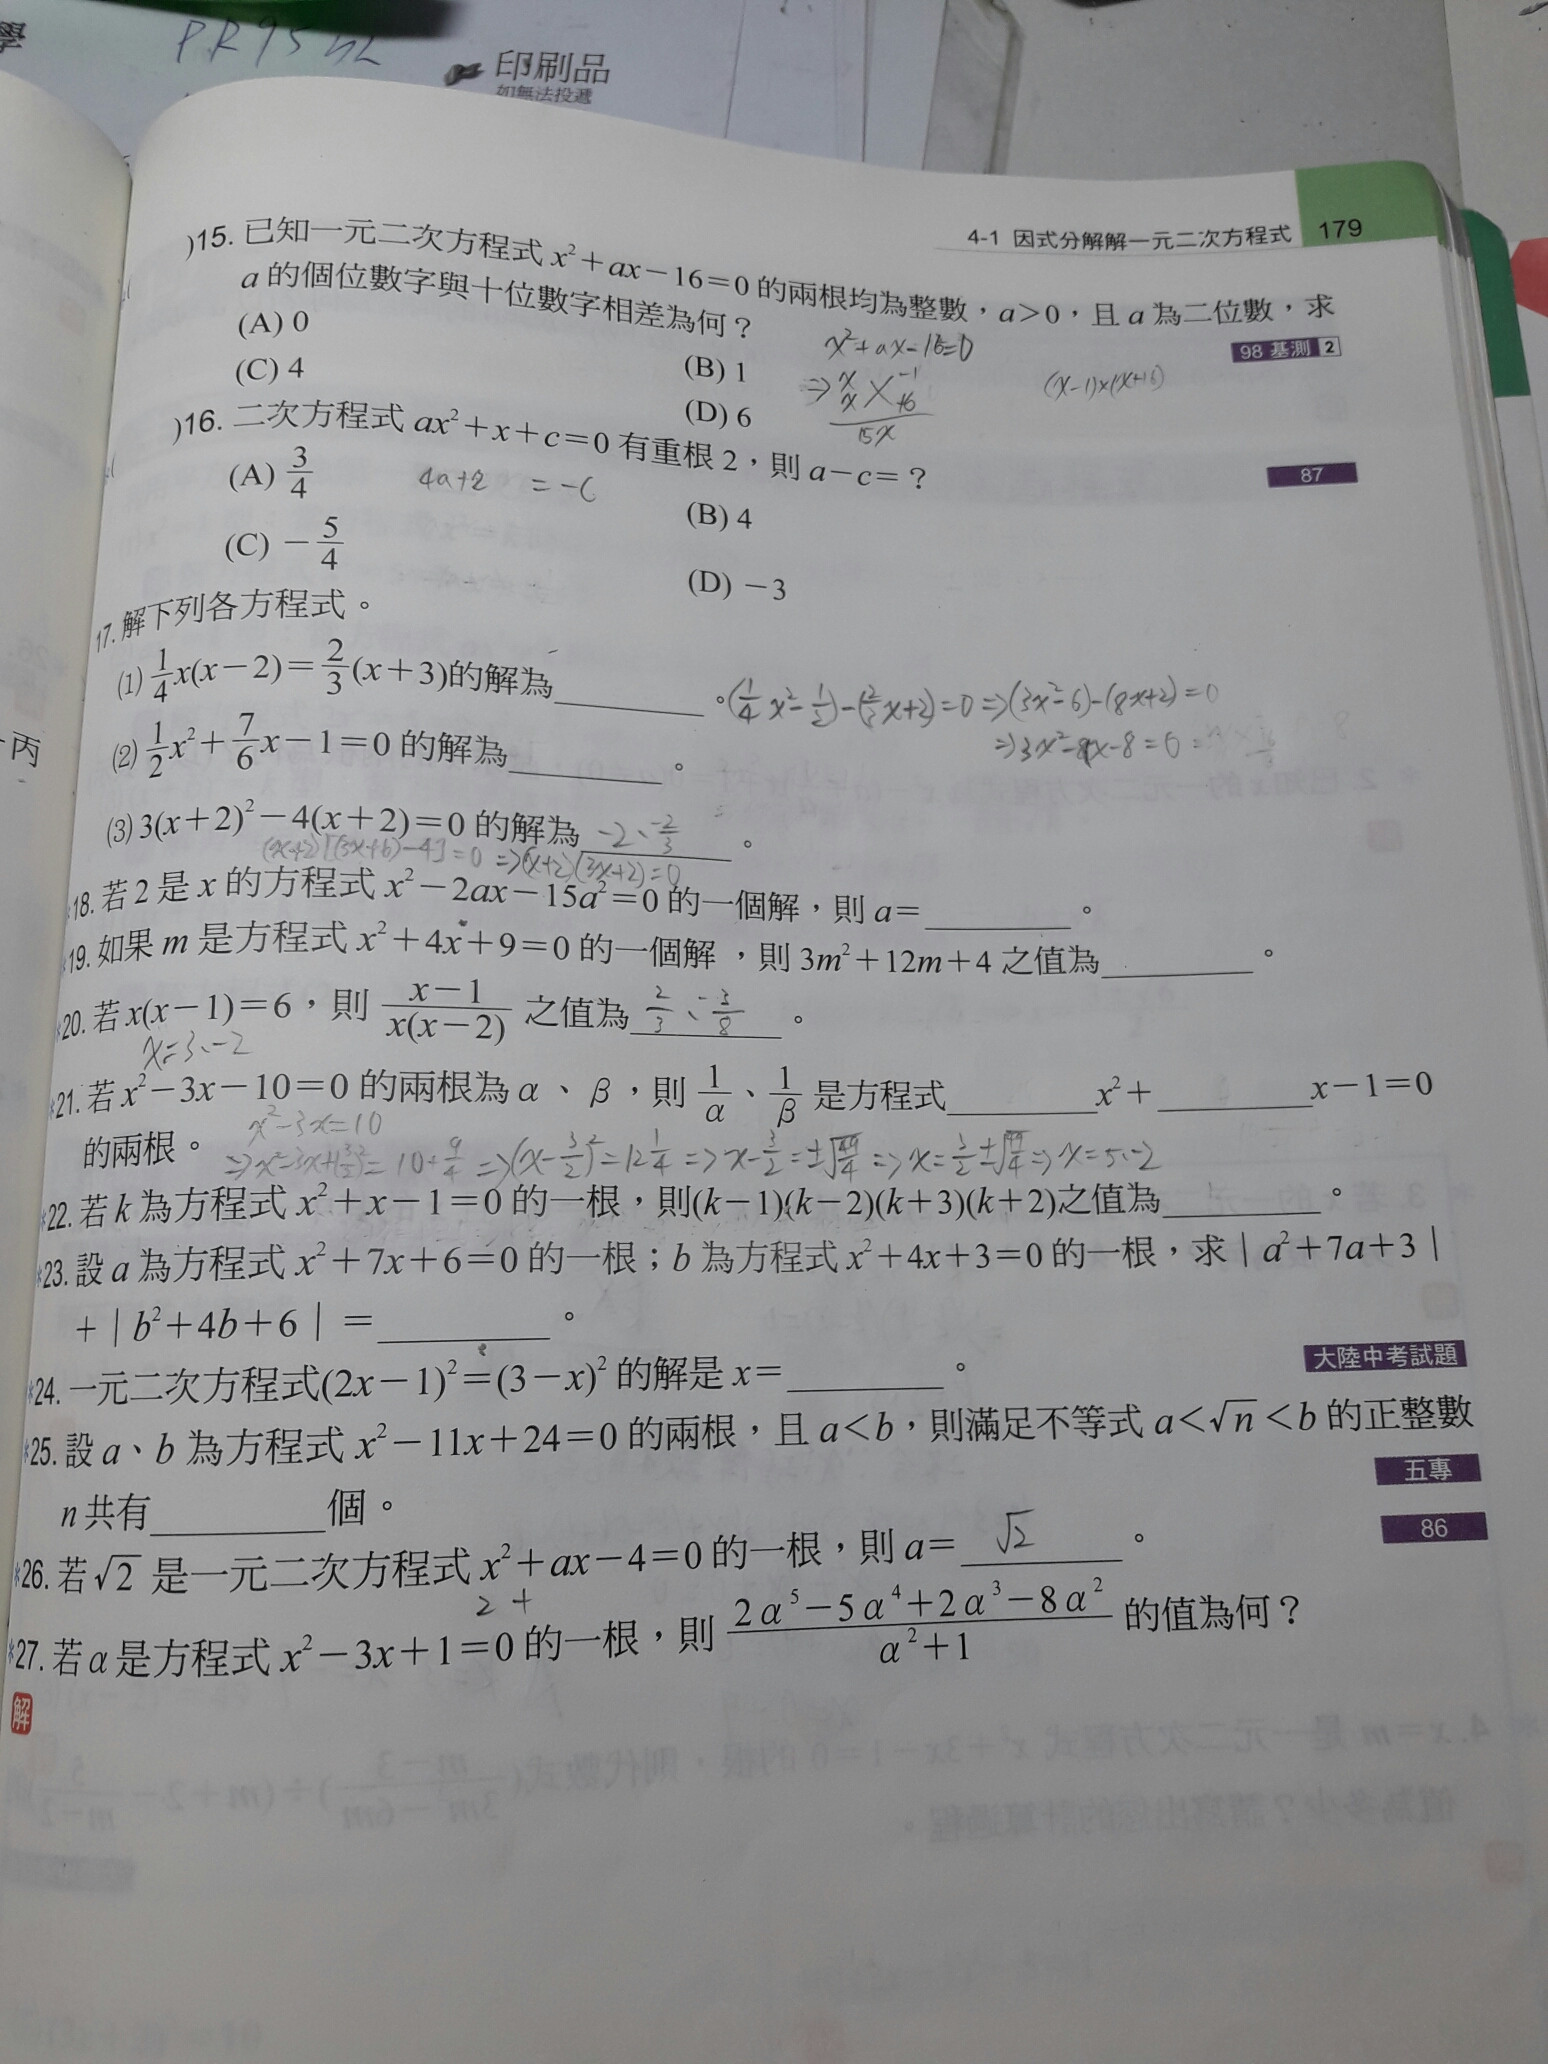 學
PR95以上
印刷品
如無法投遞
4-1 因式分解解一元二次方程式 179
)15. 已知一元二次方程式 x²+ax-16=0 的兩根均為整數，a>0，且 a 為二位數，求
a 的個位數字與十位數字相差為何？ 98 基測 2
(A) 0 (B) 1
(C) 4 (D) 6
x²+ax-16=0
⇒ x -1
x +16
15x
(x-1)×(x+16)
)16. 二次方程式 ax²+x+c=0 有重根 2，則 a-c=？ 87
(A) 3/4 (B) 4
4a+2 = -c
(C) -5/4 (D) -3
17. 解下列各方程式。
(1) 1/4x(x-2)=2/3(x+3)的解為______。
(1/4x²-1/2)-(2/3x+2)=0⇒(3x²-6)-(8x+2)=0
⇒3x²-8x-8=0
(2) 1/2x²+7/6x-1=0 的解為______。
(3) 3(x+2)²-4(x+2)=0 的解為 -2、-2/3 。
(x+2)[(3x+6)-4]=0 ⇒(x+2)(3x+2)=0
*18. 若 2 是 x 的方程式 x²-2ax-15a²=0 的一個解，則 a=______。
*19. 如果 m 是方程式 x²+4x+9=0 的一個解，則 3m²+12m+4 之值為______。
*20. 若 x(x-1)=6，則 (x-1)/(x(x-2)) 之值為 2/3、-3/8 。
x=3、-2
*21. 若 x²-3x-10=0 的兩根為 α、β，則 1/α、1/β 是方程式______x²+______x-1=0
的兩根。
x²-3x=10
⇒x²-3x+(3/2)²=10+9/4⇒(x-3/2)²=12 1/4⇒x-3/2=±√49/4⇒x=3/2±√49/4⇒x=5、-2
*22. 若 k 為方程式 x²+x-1=0 的一根，則(k-1)(k-2)(k+3)(k+2)之值為______。
*23. 設 a 為方程式 x²+7x+6=0 的一根；b 為方程式 x²+4x+3=0 的一根，求｜a²+7a+3｜
+｜b²+4b+6｜=______。
大陸中考試題
*24. 一元二次方程式(2x-1)²=(3-x)² 的解是 x=______。
*25. 設 a、b 為方程式 x²-11x+24=0 的兩根，且 a<b，則滿足不等式 a<√n<b 的正整數
五專
n 共有______個。
86
*26. 若√2 是一元二次方程式 x²+ax-4=0 的一根，則 a= √2 。
2 +
*27. 若 α 是方程式 x²-3x+1=0 的一根，則 (2α⁵-5α⁴+2α³-8α²)/(α²+1) 的值為何？
解
丙